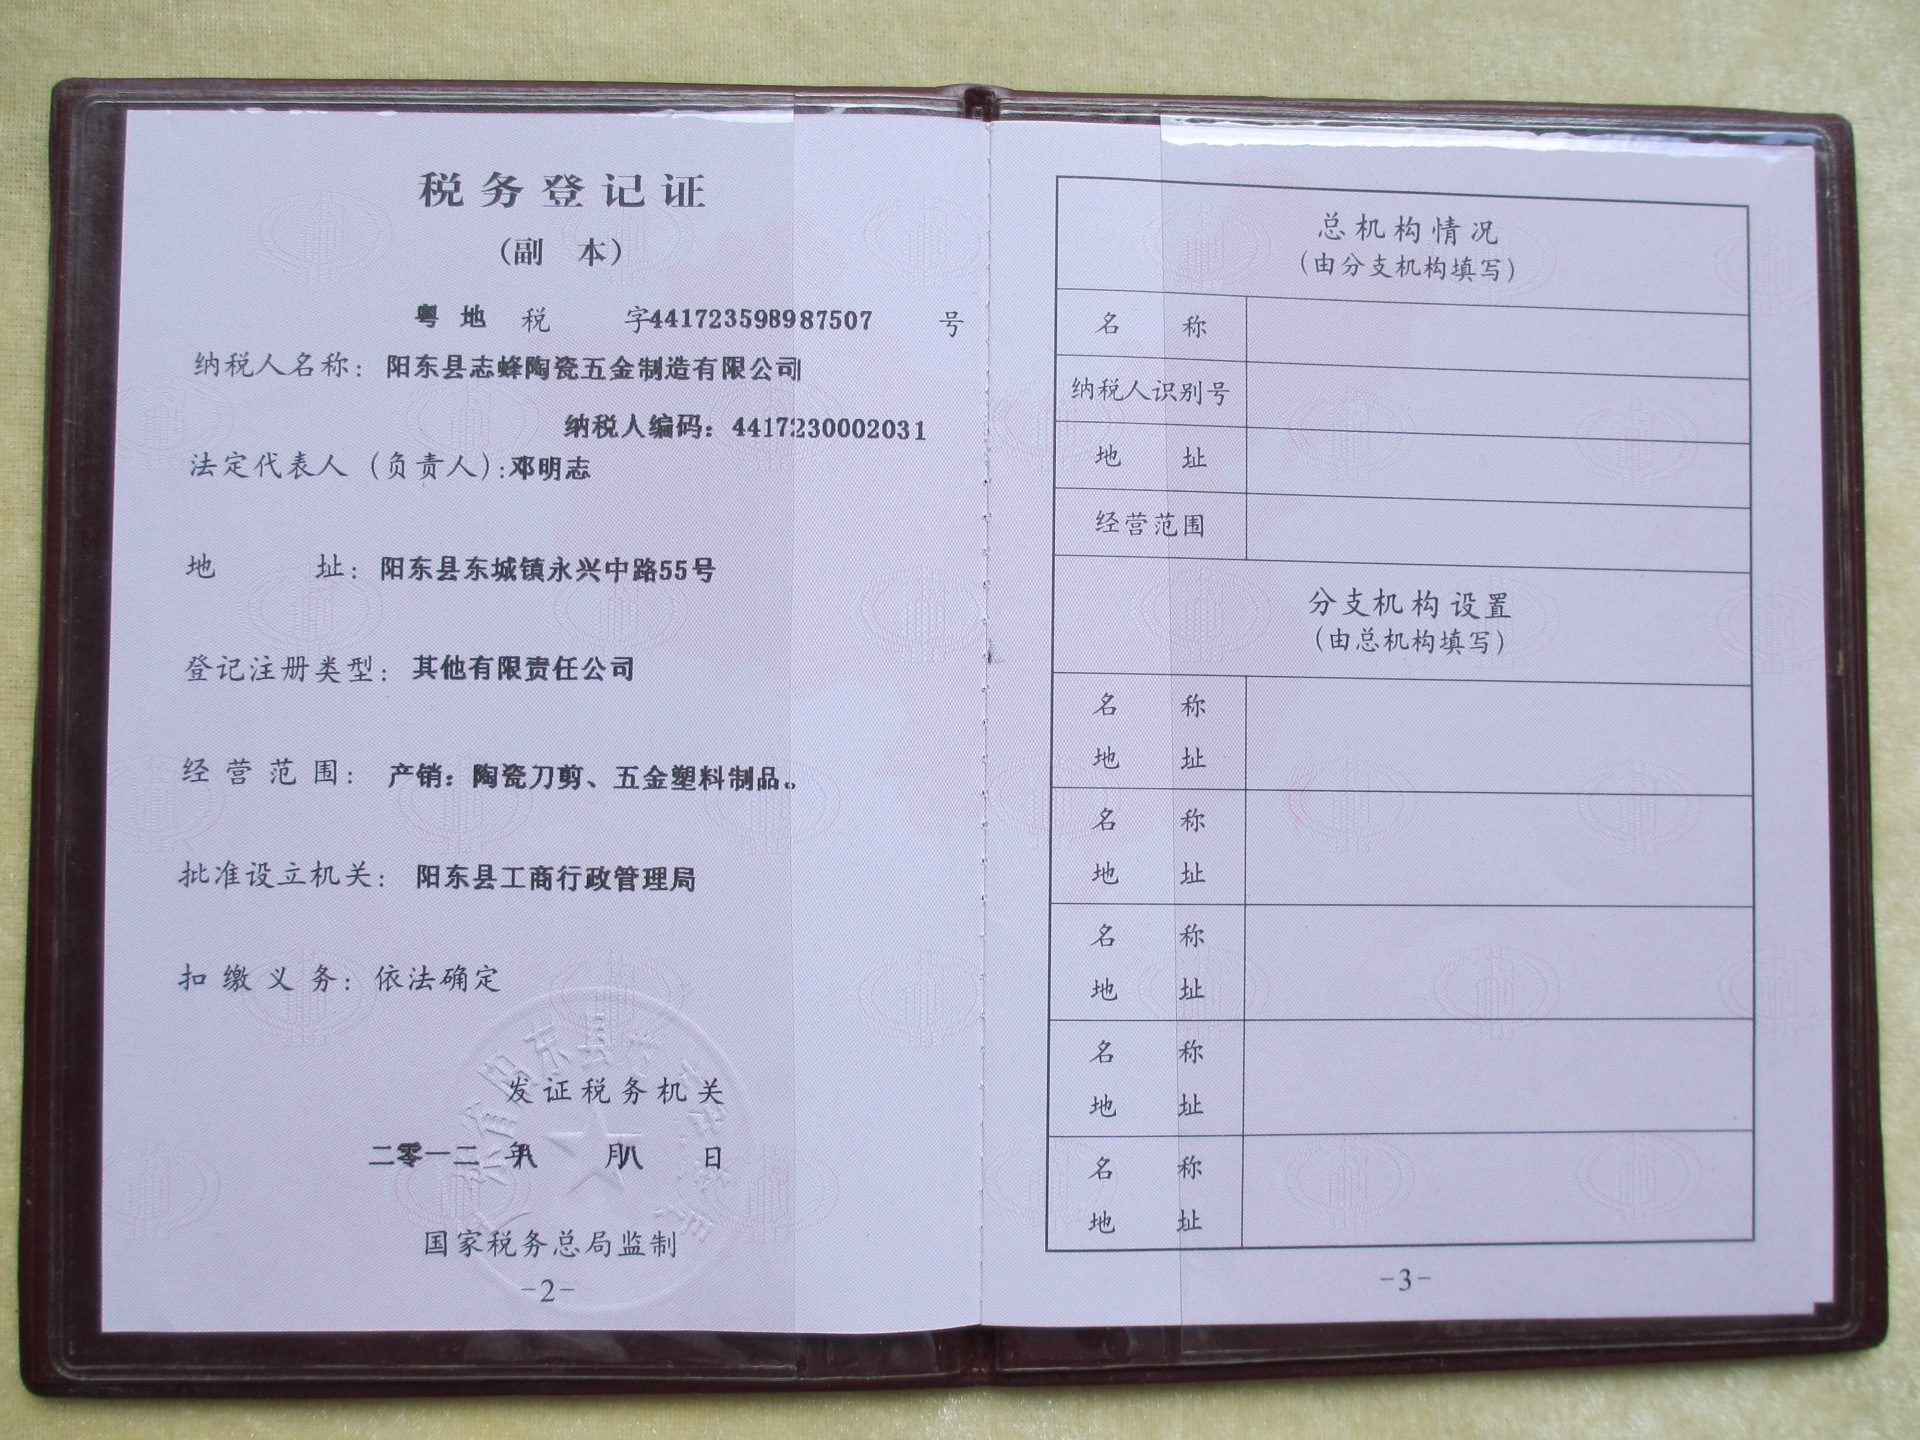 税务登记证
(副 本)
粤地 税 字441723598987507 号
纳税人名称：阳东县志蜂陶瓷五金制造有限公司
纳税人编码：4417230002031
法定代表人（负责人）:邓明志
地 址：阳东县东城镇永兴中路55号
登记注册类型：其他有限责任公司
经营范围：产销：陶瓷刀剪、五金塑料制品。
批准设立机关：阳东县工商行政管理局
扣缴义务：依法确定
发证税务机关
二零一二 年八 月八 日
国家税务总局监制
-2-
总机构情况
(由分支机构填写)
名 称
纳税人识别号
地 址
经营范围
分支机构设置
(由总机构填写)
名 称
地 址
名 称
地 址
名 称
地 址
名 称
地 址
名 称
地 址
-3-